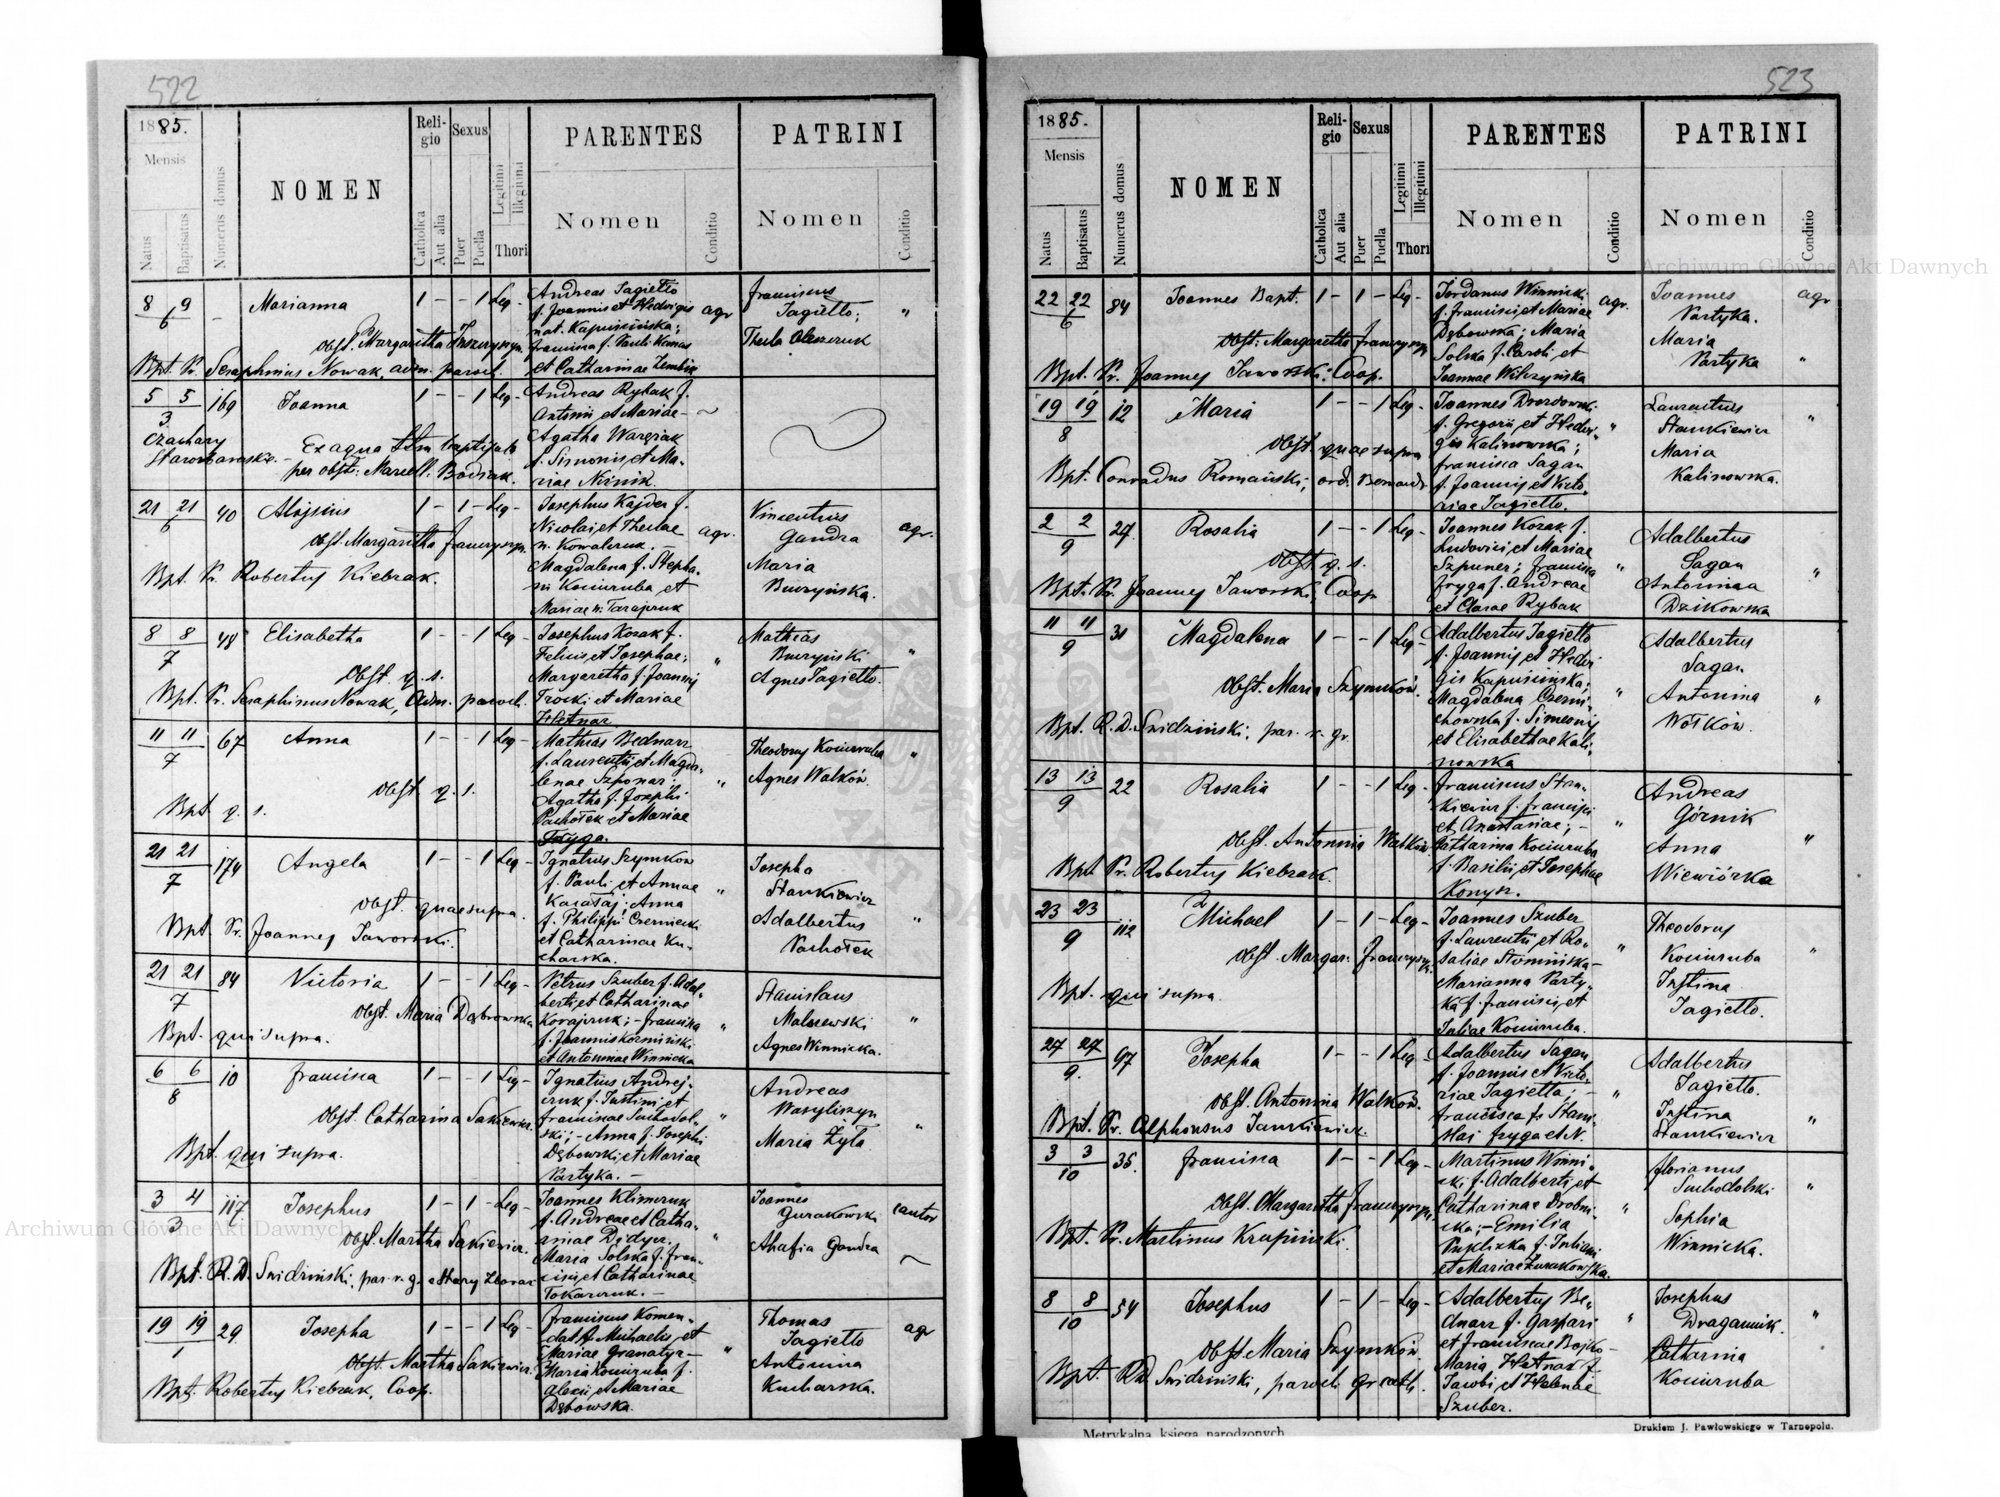 522
1885.
Mensis
Natus
Baptisatus
Numerus domus
NOMEN
Religio
Catholica
Aut alia
Sexus
Puer
Puella
Legitimi
Illegitimi
Thori
PARENTES
Nomen
Conditio
PATRINI
Nomen
Conditio
8 9
6
-
Marianna
1 - - 1 Leg -
Andreas Jagiełło
f. Joannis et Hedwigis
nat. Kapuścińska;
francisca f. Pauli
et Catharinae
agr
franciscus
Jagiełło;
Thecla Oleszczuk
"
Obst. Margaretha
Bpt. Vr. Seraphinus Nowak, adm. paroch.
5 5
3
169
Joanna
1 - - 1 Leg -
Andreas Rybak f.
Antonii et Mariae -
Agatha
f. Simonis et Ma-
riae
Ex aqua baptisata
per obst: Marcell. Bodnak.
21 21
6
40
Alojsius
1 - 1 - Leg -
Josephus Kajder f.
Nicolai et Theclae
n. Kowalczuk. -
Magdalena f. Stepha-
ni Kociuruba et
Mariae n. Tarajczuk
agr.
Vincentius
Gandza
Maria
Buczyńska.
agr.
Obst. Margaretha
Bpt. Vr. Robertus Kiebzak.
8 8
7
48
Elisabetha
1 - - 1 Leg -
Josephus Kozak f.
Felicis et Josephae;
Margaretha f. Joannis
Trocki et Mariae
Hetnar.
"
Mathias
Buczyński
Agnes Jagiełło.
"
Obst. q. s.
Bpt. Vr. Seraphinus Nowak, Adm. paroch.
11 11
7
67
Anna
1 - - 1 Leg -
Mathias Bednarz
f. Laurentii et Magda-
lenae Szponar;
Agatha f. Josephi
Pachołek et Mariae
Fryga.
"
Theodorus Kociuruba
Agnes Walków.
"
Obst. q. s.
Bpt. q. s.
21 21
7
174
Angela
1 - - 1 Leg -
Ignatius Szymków
f. Pauli et Annae
Karasaj; Anna
f. Philippi Czernicki
et Catharinae Ku-
charska.
"
Josepha
Stankiewicz
Adalbertus
Pachołek
"
Obst. quae supra.
Bpt. Vr. Joannes Jaworski.
21 21
7
84
Victoria
1 - - 1 Leg -
Petrus Szuber f. Adal-
berti et Catharinae
Korajczuk; - francisca
f. Joannis
et Antoninae Winnicka
"
Stanislaus
Malczewski
Agnes Winnicka.
"
Obst. Maria Dąbrowska
Bpt. qui supra.
6 6
8
10
francisca
1 - - 1 Leg -
Ignatius Andrej-
czuk f. Justini et
franciscae Suchodol-
ski; - Anna f. Josephi
Dębowski et Mariae
Partyka. -
"
Andreas
Wasyliszyn
Maria Żyła
"
Obst. Catharina Sakiewicz.
Bpt. qui supra.
3 4
3
117
Josephus
1 - 1 - Leg -
Joannes Klimczuk
f. Andreae et Catha-
rinae Didycz.
Maria Solska f. fran-
cisci et Catharinae
Tokarczuk. -
"
Joannes
Gurakowski
Ahafia Gandza
cantor
Obst. Martha Sakiewicz.
Bpt. R. D. Swidziński, par. r. g. e Stary Zbaraz
19 19
1
29
Josepha
1 - - 1 Leg -
franciscus Komen-
dat f. Michaelis et
Mariae Granatyr -
Maria Kociuruba f.
Alexii et Mariae
Dębowska.
"
Thomas
Jagiełło
Antonina
Kucharska.
agr
Obst. Martha Sakiewicz
Bpt. Robertus Kiebzak, Coop.
523
1885.
Mensis
Natus
Baptisatus
Numerus domus
NOMEN
Religio
Catholica
Aut alia
Sexus
Puer
Puella
Legitimi
Illegitimi
Thori
PARENTES
Nomen
Conditio
PATRINI
Nomen
Conditio
22 22
6
84
Joannes Bapt.
1 - 1 - Leg -
Jordanus Winnicki
f. francisci et Mariae
Dębowska; Maria
Solska f. Caroli et
Joannae Wilczyńska
agr.
Joannes
Partyka.
Maria
Partyka
agr
"
Obst: Margaretha
Bpt. Vr. Joannes Jaworski: Coop.
19 19
8
12
Maria
1 - - 1 Leg -
Joannes Drozdowski
f. Gregorii et Hedwi-
gis Kalinowska;
francisca Sagan
f. Joannis et Victo-
riae Jagiełło.
"
Laurentius
Stankiewicz
Maria
Kalinowska.
"
Obst quae supra
Bpt. Conradus Romański, ord. Bernard
2 2
9
27
Rosalia
1 - - 1 Leg -
Joannes Kozak f.
Ludovici et Mariae
Szpuner; francisca
fryga f. Andreae
et Clarae Rybak
"
Adalbertus
Sagan
Antonina
Dzikowska
"
Obst q. s.
Bpt. Vr. Joannes Jaworski, Coop
11 11
9
31
Magdalena
1 - - 1 Leg -
Adalbertus Jagiełło
f. Joannis et Hedwi-
gis Kapuścinska;
Magdalena Czerni-
chowska f. Simeonis
et Elisabethae Kali-
nowska
"
Adalbertus
Sagan
Antonina
Wołków.
"
Obst. Maria Szymków.
Bpt. R. D. Swidziński, par. r. gr.
13 13
9
22
Rosalia
1 - - 1 Leg -
franciscus Stan-
kiewicz f. francisci
et Anastasiae; -
Catharina Kociuruba
f. Basilii et Josephae
Konysz.
"
Andreas
Górnik
Anna
Wiewiórka
"
Obst. Antonina Walków.
Bpt. Vr. Robertus Kiebzak.
23 23
9
112
Michael
1 - 1 - Leg -
Joannes Szuber
f. Laurentii et Ro-
saliae Słomińska -
Marianna Party-
ka f. francisci et
Juliae Kociuruba.
"
Theodorus
Kociuruba
Justina
Jagiełło.
"
Obst. Margar.
Bpt. qui supra.
27 27
9.
97
Josepha
1 - - 1 Leg -
Adalbertus Sagan
f. Joannis et Victo-
riae Jagiełło, -
francisca f. Stani-
slai fryga et N.
"
Adalbertus
Jagiełło.
Justina
Stankiewicz
"
Obst. Antonina Walków.
Bpt. Vr. Alphonsus Jankiewicz.
3 3
10
35.
francisca
1 - - 1 Leg -
Martinus Winni-
cki f. Adalberti et
Catharinae Drobni-
cka; - Emilia
f. Juliani
et Mariae Żurakowska.
"
florianus
Suchodolski
Sophia
Winnicka.
"
Obst. Margaretha
Bpt. Vr. Martinus Krupiński.
8 8
10
54
Josephus
1 - 1 - Leg -
Adalbertus Be-
dnarz f. Gaspari
et franciscae Bojko -
Maria Hetnar f.
Jacobi et Helenae
Szuber.
"
Josephus
Draganiuk.
Catharina
Kociuruba
"
Obst. Maria Szymków.
Bpt. RD Swidziński, paroch gr cath.
Metrykalna księga narodzonych
Drukiem J. Pawłowskiego w Tarnopolu.
Archiwum Główne Akt Dawnych
Archiwum Główne Akt Dawnych